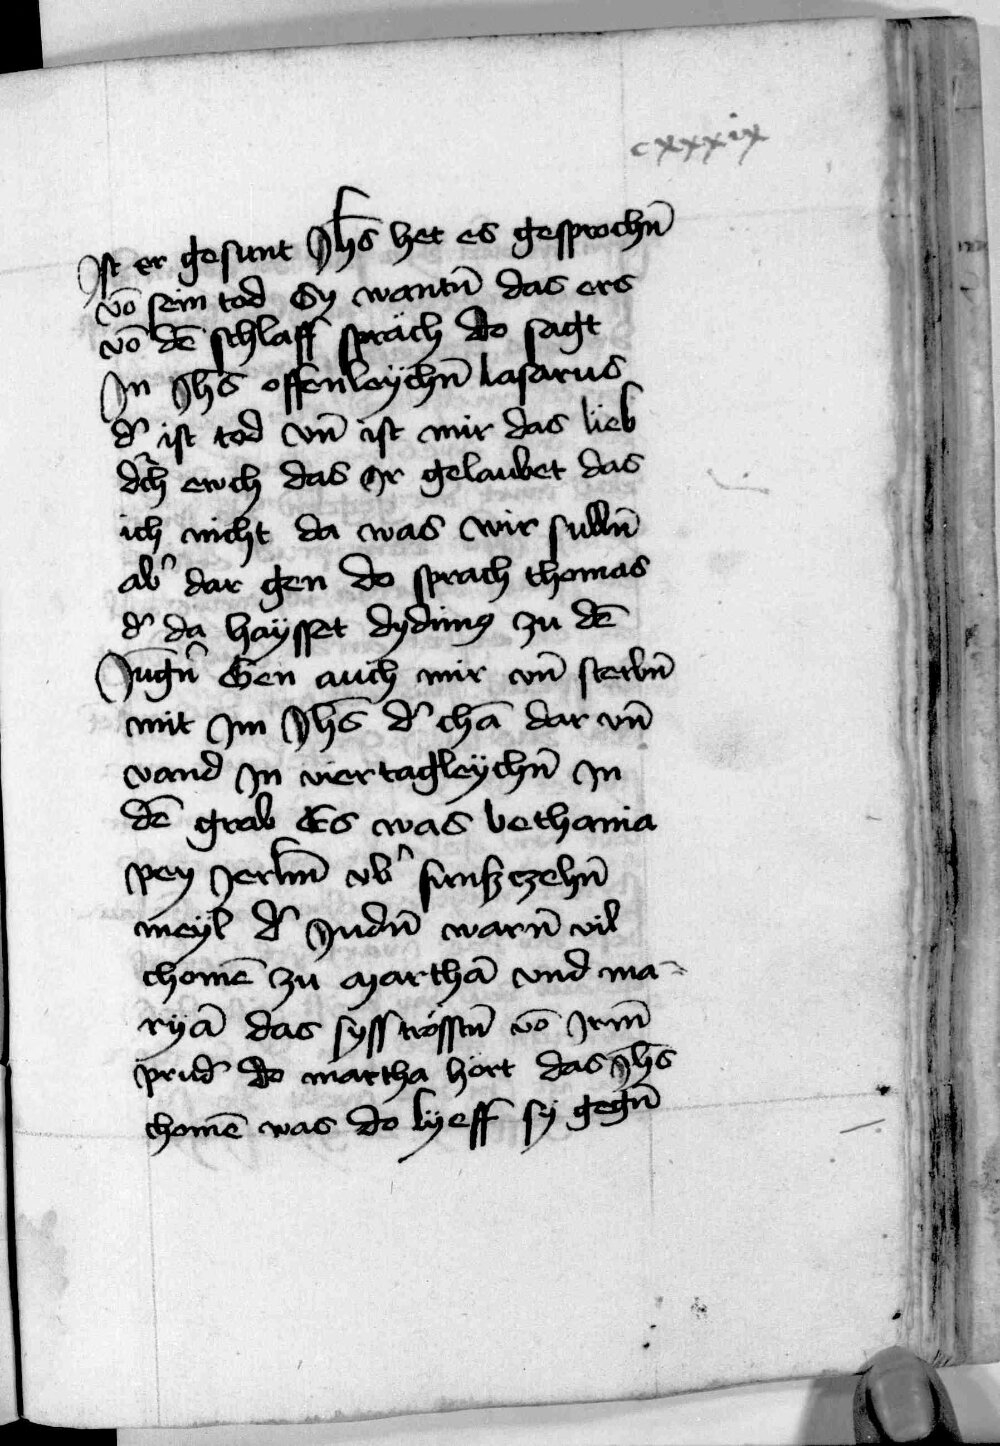 cxxxix
Ist er gesunt Jhs het es gesprochn̄
vō sein tod Sy wantn̄ das ers
vō dē schlaff spräch do sagt
In Jhs offenleychn̄ lasarus
d' ist tod vn̄ ist mir das lieb
dch ewch das Ir gelaubet das
ich nicht da was wir sulln̄
ab' dar gen do sprach thomas
d' da haysset dydimꝰ zu dē
Jūgn' Gen auch mir vn̄ sterbn̄
mit Im Jhs d' chā dar vn̄
vand In viertagleychn̄ In
dē grab Es was bethania
pey Jerlm̄ vb' funfzczehn̄
meyl d' Judn̄ warn̄ vil
chomē zu Marthā vnd ma-
ryā das sy ss trösstn̄ vō Irm̄
prud' do martha hört das Jhs
chomē was do lyeff sy gegn̄